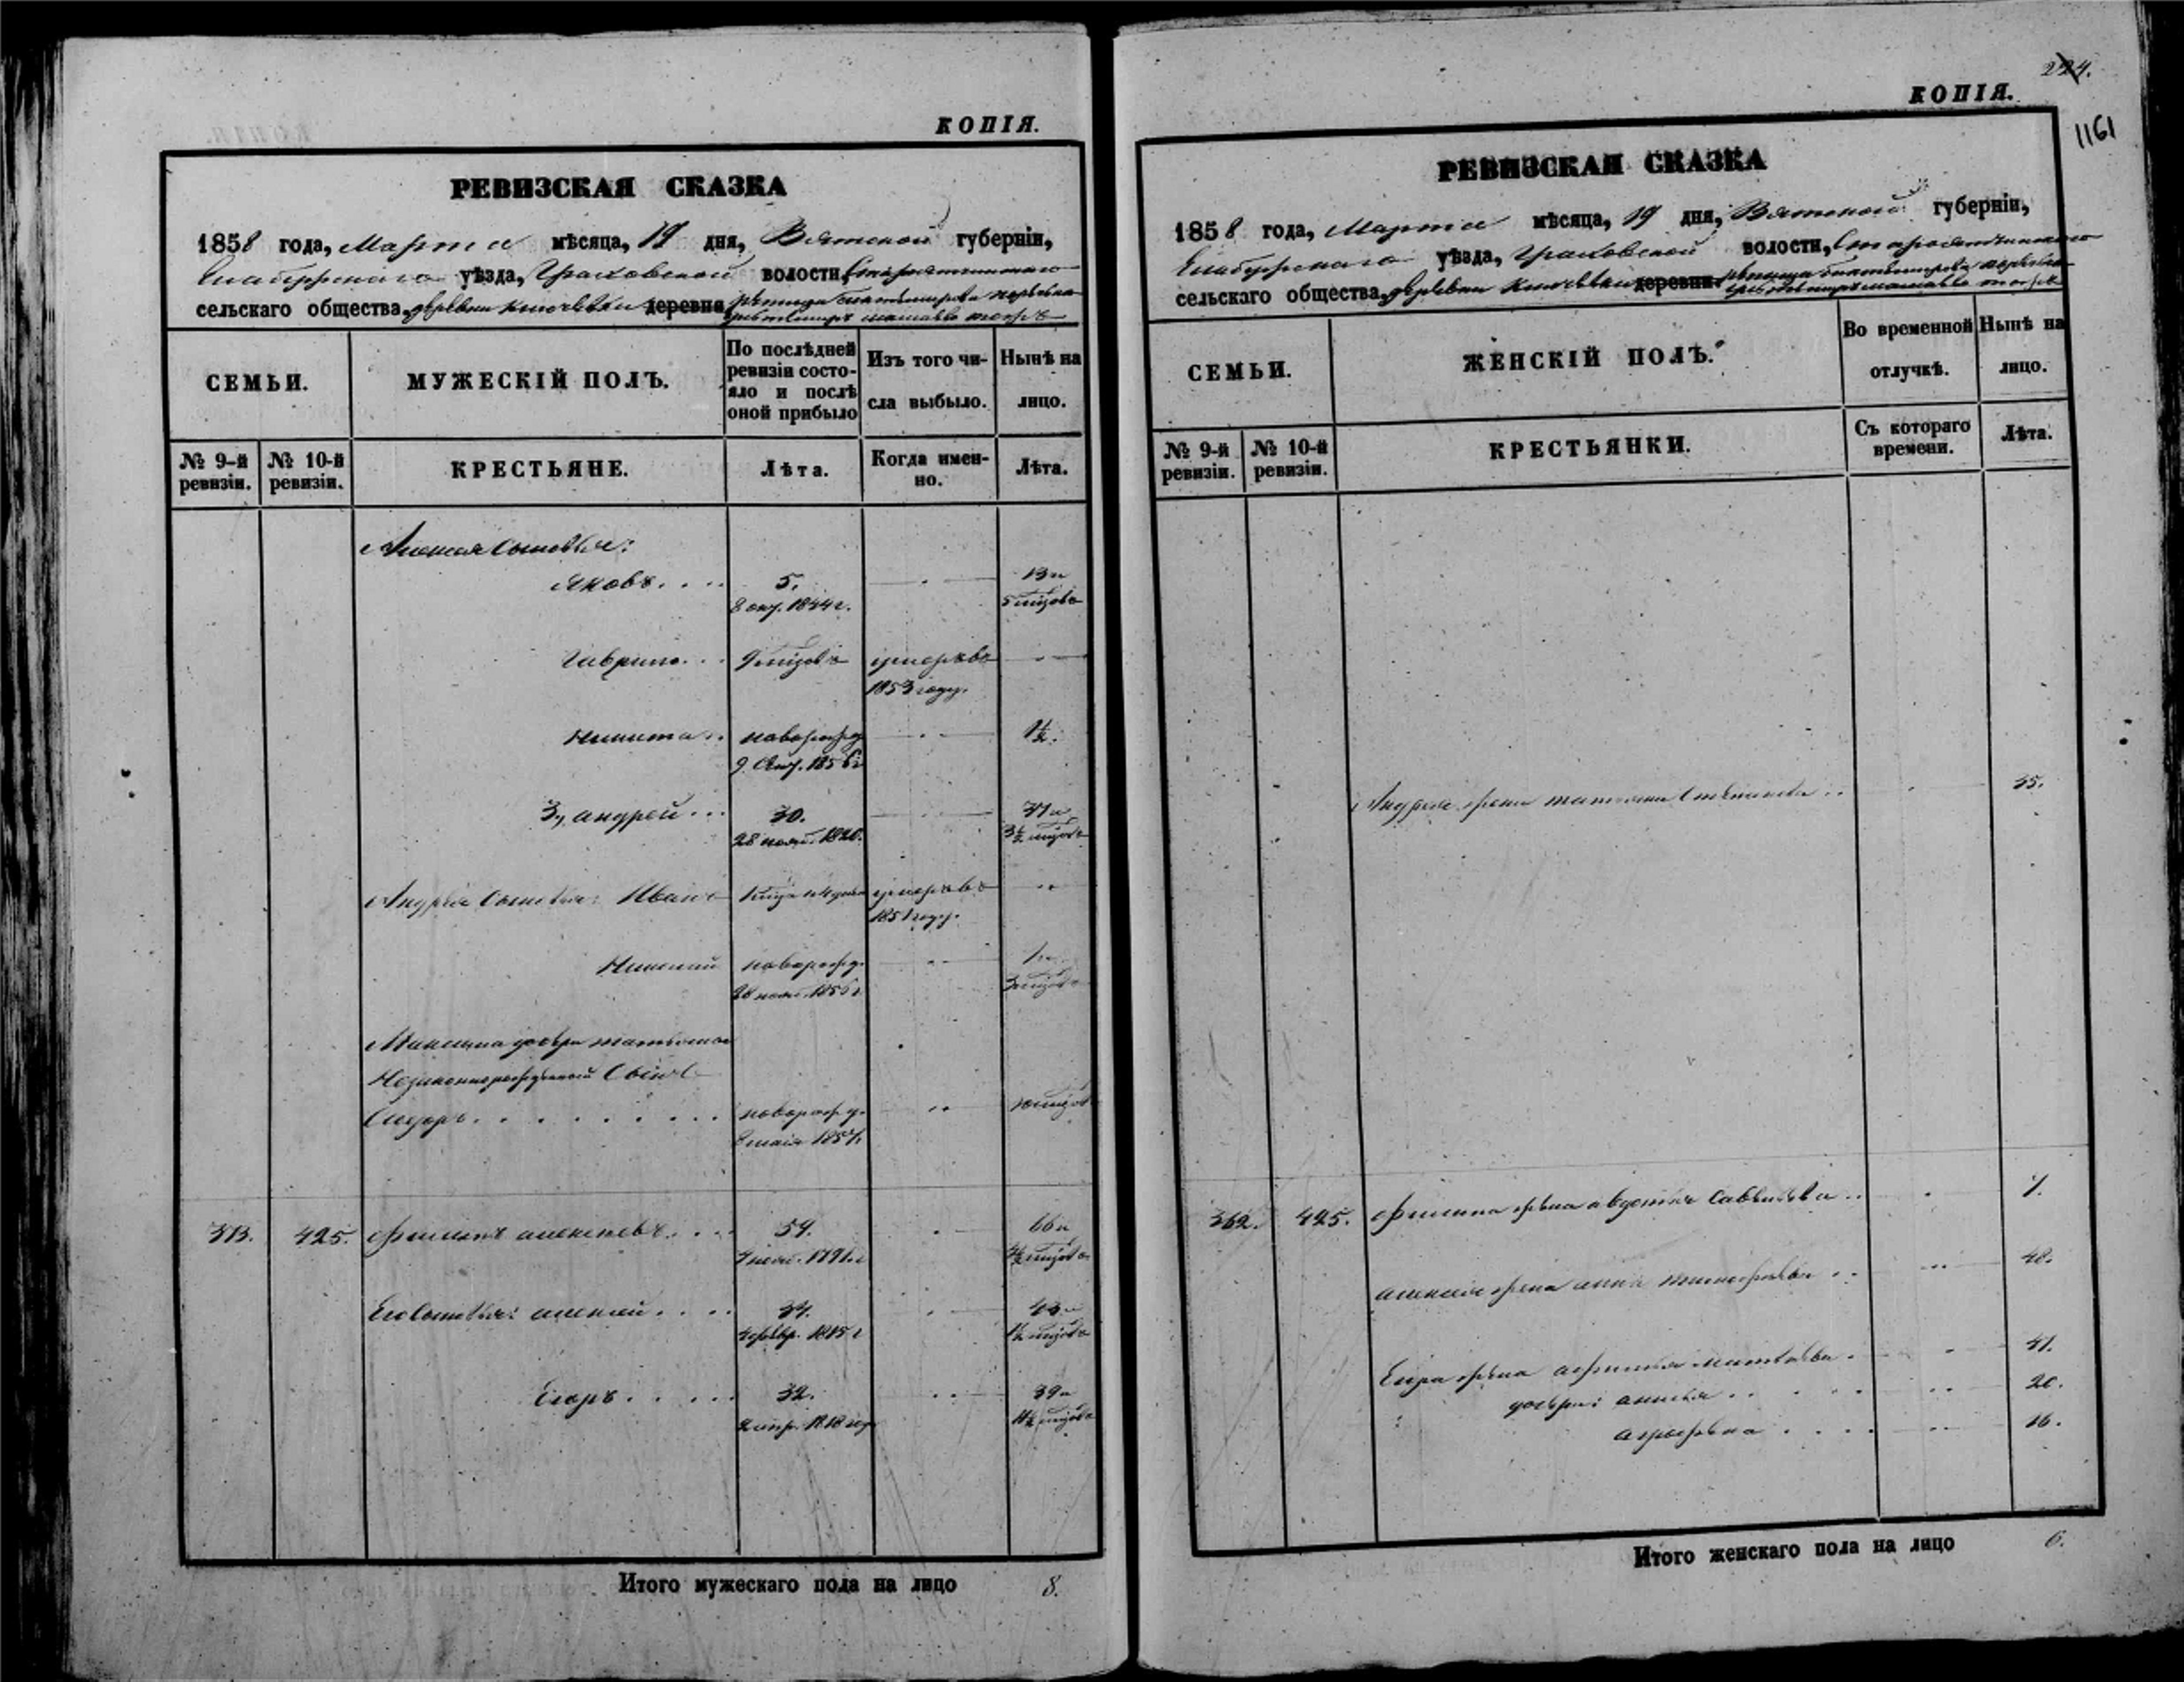 КОПІЯ.
РЕВИЗСКАЯ СКАЗКА
1858 года, Марта мѣсяца, 19 дня, Вятской губерніи,
Елабужскаго уѣзда, Граховской волости,
сельскаго общества, деревни Ключевки деревня
СЕМЬИ.
МУЖЕСКІЙ ПОЛЪ.
По послѣдней ревизіи состо-
яло и послѣ
оной прибыло
Изъ того чи-
сла выбыло.
Нынѣ на
лицо.
№ 9-й
ревизіи.
№ 10-й
ревизіи.
КРЕСТЬЯНЕ.
Лѣта.
Когда имен-
но.
Лѣта.
Алексея Сыновья:
Яковъ.... 5. 13 и
8 окт. 1844 г. 5 мцовъ
Гаврило... 9 мцовъ умеръ въ
1853 году.
Никита.. новорожд. 1½.
9 Сент. 1856 г
3, Андрей... 30. 37 и
28 нояб. 1820. 3½ мцовъ
Андрея Сыновья: Иванъ умеръ въ
1851 году.
Николай новорожд. 1 и
28 нояб. 1856 г 3 мцовъ
Максима дочери
Незаконнорожденный Сынъ
Сидоръ........ новорожд. 10 мцов
8 маія 1857 г.
313. 425. Филипъ Алексеевъ.... 57. 66 и
1791 г 4½ мцовъ
Его Сыновья: Алексей.... 34. 43 и
февр. 1815 г 1½ мцовъ
Егоръ..... 32. 39 и
2 апр. 1818 года 11½ мцовъ
Итого мужескаго пола на лицо 8.
224.
КОПІЯ.
1161
РЕВИЗСКАЯ СКАЗКА
1858 года, Марта мѣсяца, 19 дня, Вятской губерніи,
Елабужскаго уѣзда, Граховской волости,
сельскаго общества, деревни Ключевки деревни
СЕМЬИ.
ЖЕНСКІЙ ПОЛЪ.
Во временной
отлучкѣ.
Нынѣ на
лицо.
№ 9-й
ревизіи.
№ 10-й
ревизіи.
КРЕСТЬЯНКИ.
Съ котораго
времени.
Лѣта.
Андрея жена Татьяна Степанова.. 35.
362. 425. Филипа жена Авдотья Савельева..
Алексея жена Анна Тимофеева.. 48.
Егора жена Афимья Матвеева. 41.
дочери: Анисья.. 20.
Агрофена.... 16.
Итого женскаго пола на лицо 6.